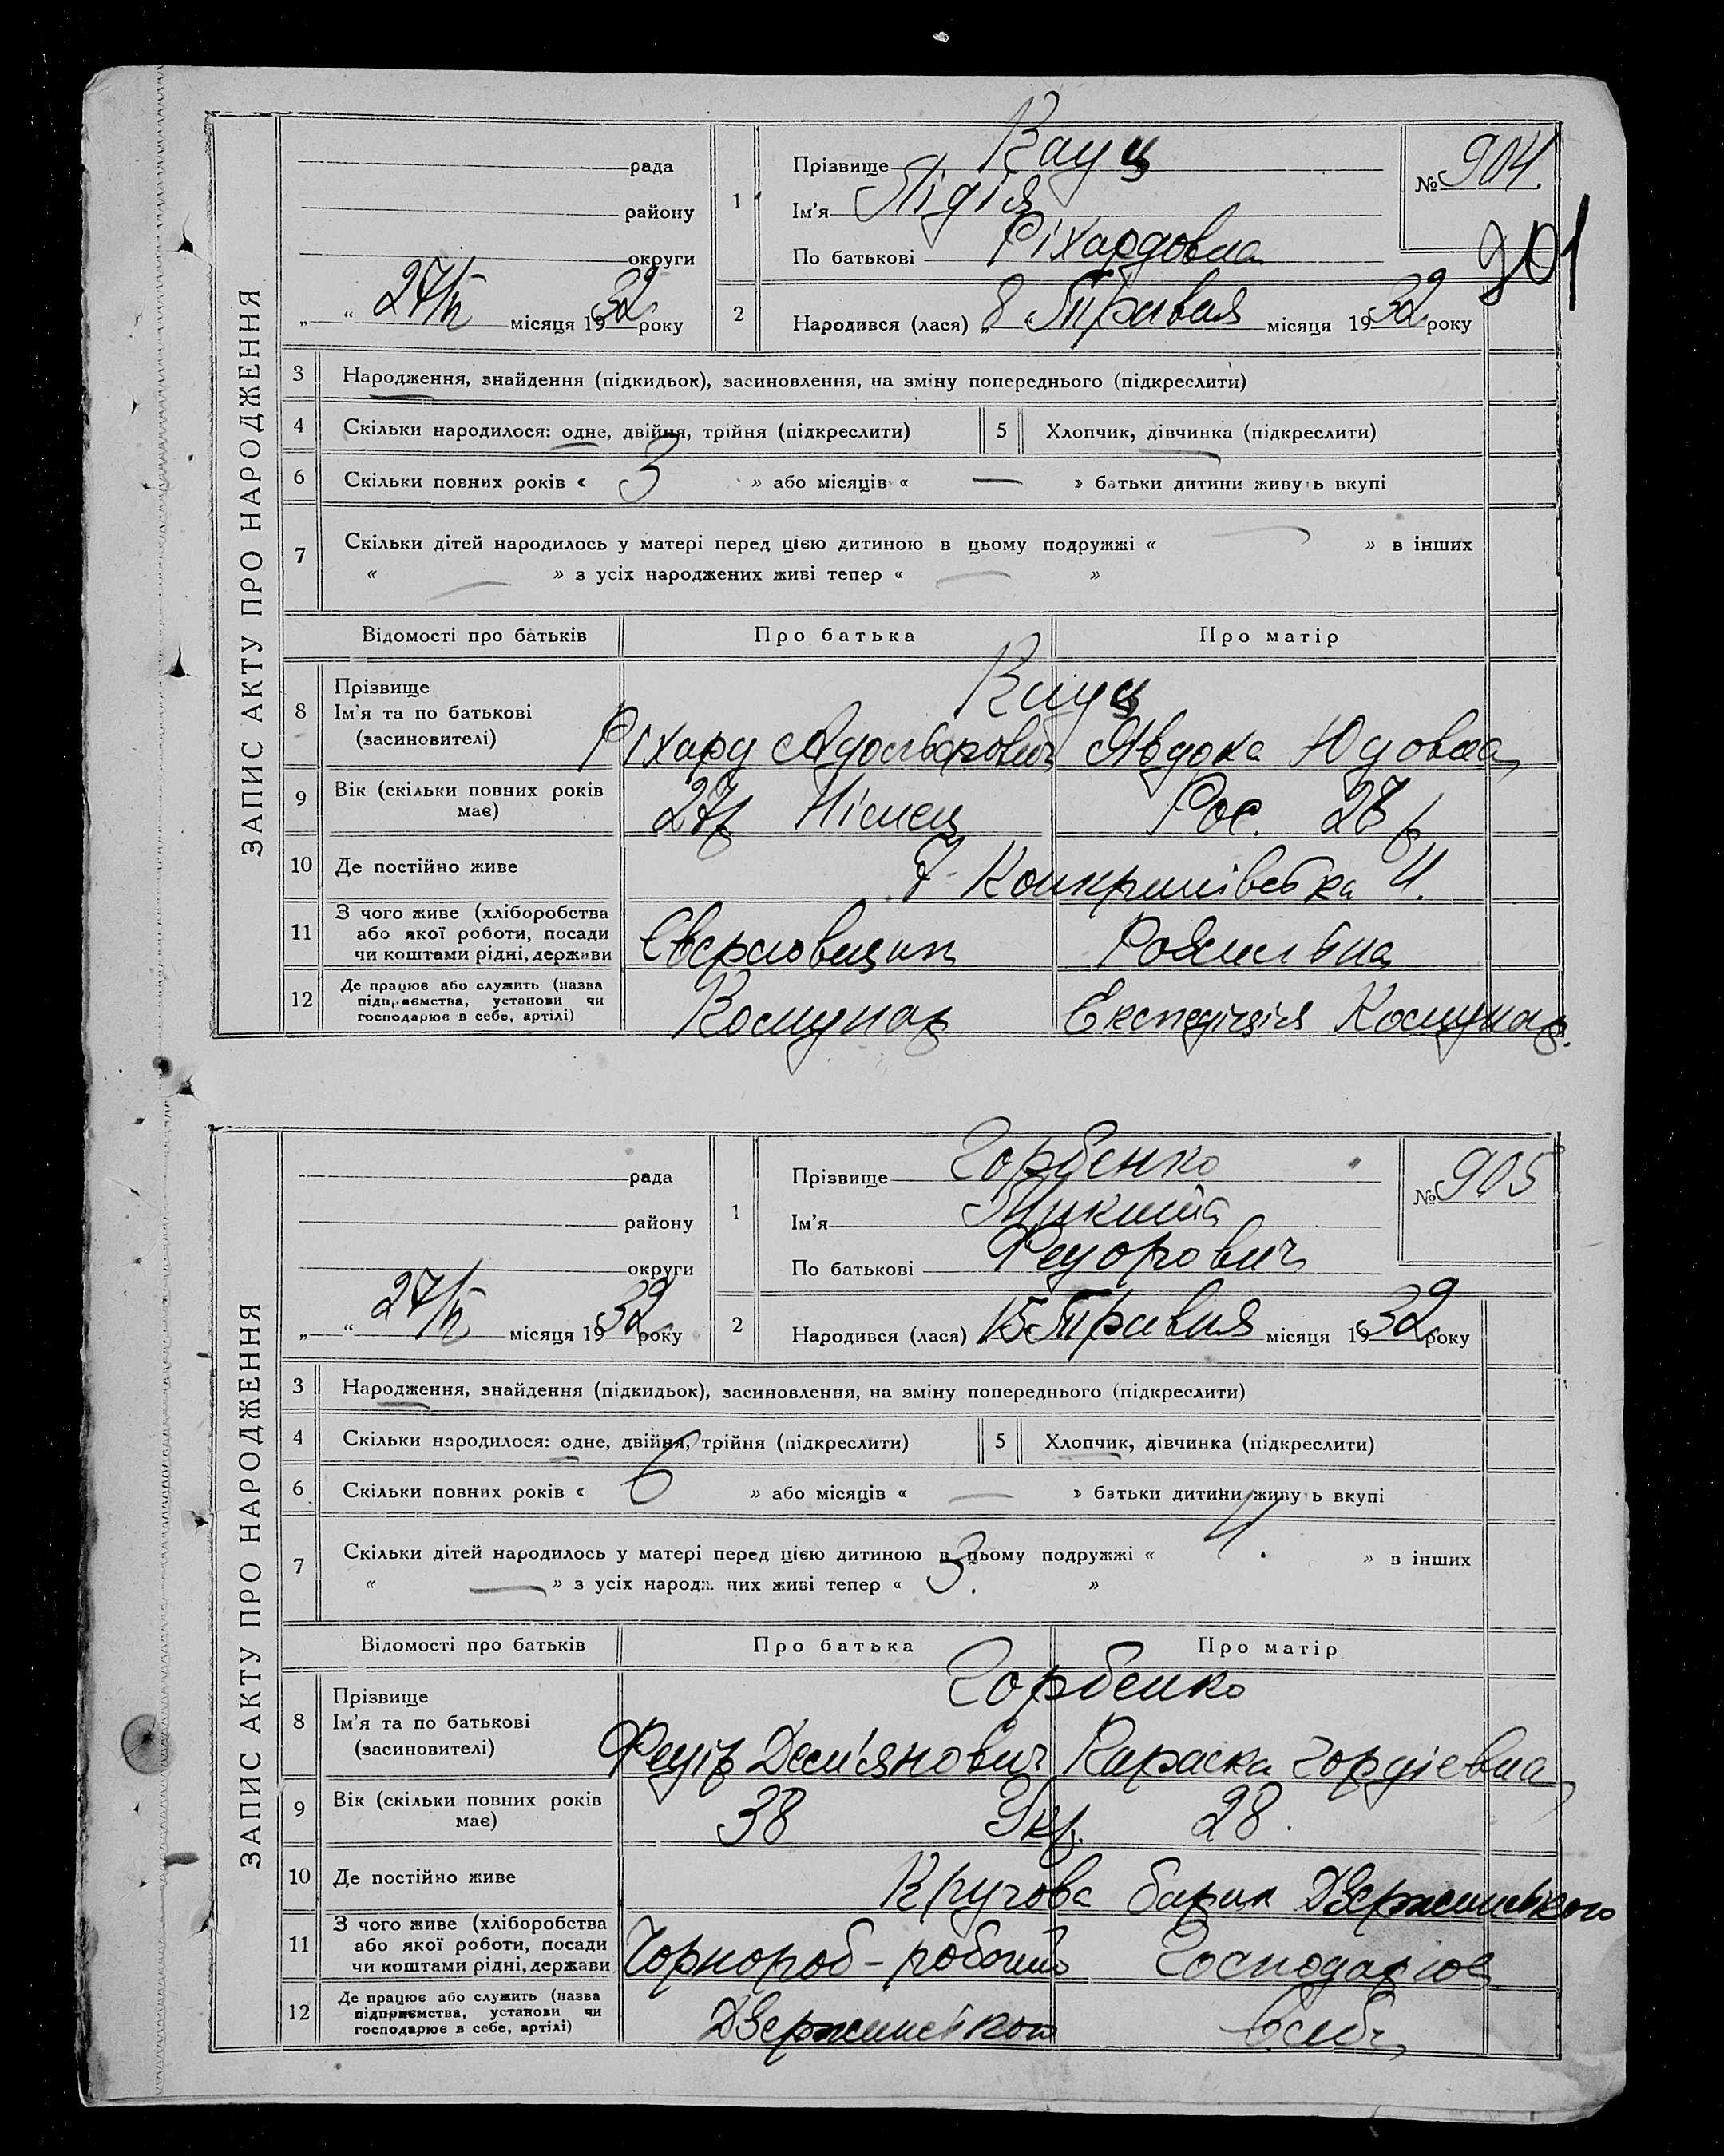 ЗАПИС АКТУ ПРО НАРОДЖЕННЯ
рада
району
округи
„ “ 27/V місяця 1932 року
1
Прізвище Кауц
Ім'я Лідія
По батькові Ріхардовна
№ 904.
901
2
Народився (лася) „8 Травня місяця 1932 року
3 Народження, знайдення (підкидьок), засиновлення, на зміну попереднього (підкреслити)
4 Скільки народилося: одне, двійня, трійня (підкреслити) 5 Хлопчик, дівчинка (підкреслити)
6 Скільки повних років « 3 » або місяців « — » батьки дитини живуть вкупі
7 Скільки дітей народилось у матері перед цією дитиною в цьому подружжі « — » в інших
« — » з усіх народжених живі тепер « — »
Відомості про батьків Про батька Про матір
8 Прізвище
Ім'я та по батькові
(засиновителі)
Кауц
Ріхард Адольфович Явдоха Юдовна
9 Вік (скільки повних років має)
27р Німець Рос. 28 р
10 Де постійно живе
7
11 З чого живе (хліборобства або якої роботи, посади чи коштами рідні, держави
Сверловщик
12 Де працює або служить (назва підприємства, установи чи господарює в себе, артілі)
Комунар Експедиція Комунар.
ЗАПИС АКТУ ПРО НАРОДЖЕННЯ
рада
району
округи
„ “ 27/V місяця 1932 року
1
Прізвище Горбенко
Ім'я Микита
По батькові Федорович
№ 905
2
Народився (лася) 15 Травня місяця 1932 року
3 Народження, знайдення (підкидьок), засиновлення, на зміну попереднього (підкреслити)
4 Скільки народилося: одне, двійня, трійня (підкреслити) 5 Хлопчик, дівчинка (підкреслити)
6 Скільки повних років « 6 » або місяців « — » батьки дитини живуть вкупі
7 Скільки дітей народилось у матері перед цією дитиною в цьому подружжі « 4. » в інших
« — » з усіх народжених живі тепер « 3. »
Відомості про батьків Про батька Про матір
8 Прізвище
Ім'я та по батькові
(засиновителі)
Горбенко
Федір Дем'янович Параска Гордієвна
9 Вік (скільки повних років має)
38 Укр. 28.
10 Де постійно живе
барак Дзержинського
11 З чого живе (хліборобства або якої роботи, посади чи коштами рідні, держави
Чорнороб-робочий Господарює
12 Де працює або служить (назва підприємства, установи чи господарює в себе, артілі)
Дзержинського в себе